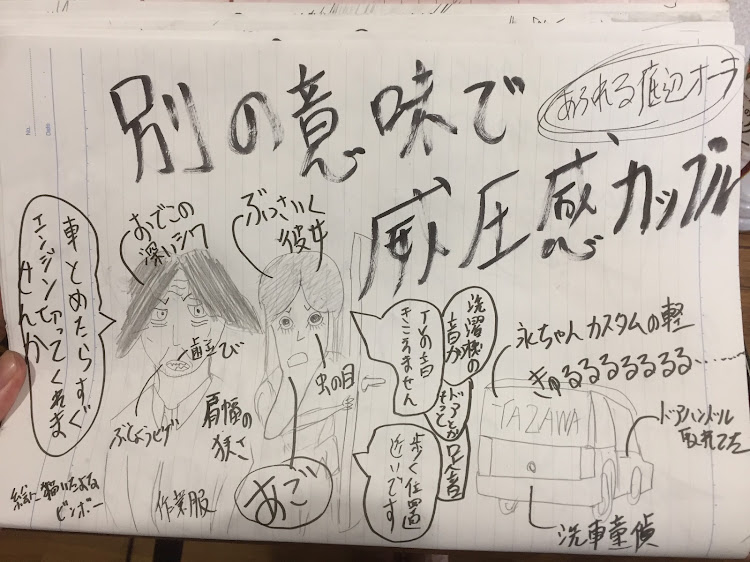 別の意味で
威圧感カップル
あふれる底辺オーラ
車とめたらすぐ
エンジン切ってくれま
せんか
おでこの
深いシワ
ぶっさいく
彼女
歯並び
虫の目
ぶしょうヒゲ
肩幅の
狭さ
作業服
あご
絵に描いたような
ビンボー
洗濯機の
音が
TVの音
きこえません
ドアとか
もって
足音
歩く位置
近いです
永ちゃんカスタムの軽
きゅるるるるるるる……
TAZAWA
ドアハンドル
取れてた
洗車童貞
No.
Date